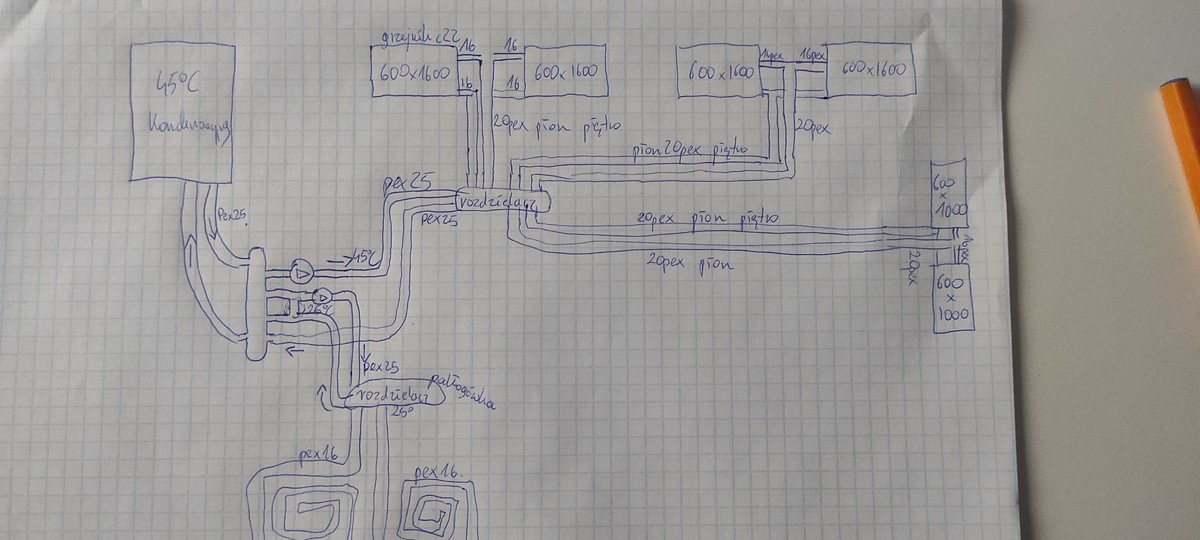 grzejnik c22
16
16
45°C
Kondensacyjny
600x1600
16
16
600x1600
600x1600
16pex
16pex
600x1600
20pex pion piętro
20pex
pion 20pex piętro
pex25
Pex25
rozdzielacz
pex25
600
x
1000
20pex pion piętro
→45°C
20pex pion
16pex
20pex
26°C
600
x
1000
pex25
rozdzielacz
podłogówka
25°
pex16
pex16.